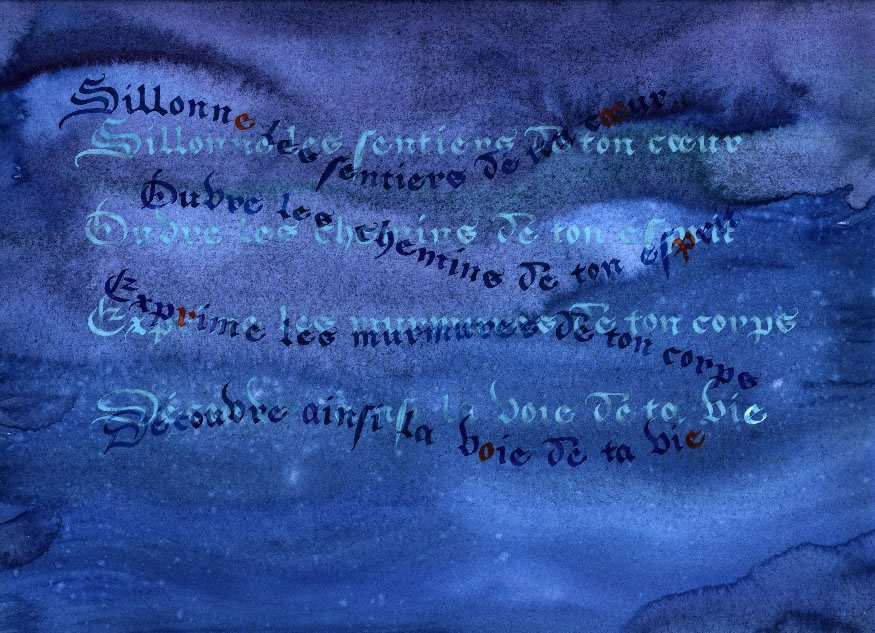 Sillonne les sentiers de ton cœur
Sillonne les sentiers de ton cœur
Ouvre les chemins de ton esprit
Ouvre les chemins de ton esprit
Exprime les murmures de ton corps
Exprime les murmures de ton corps
Découvre ainsi la voie de ta vie
Découvre ainsi la voie de ta vie